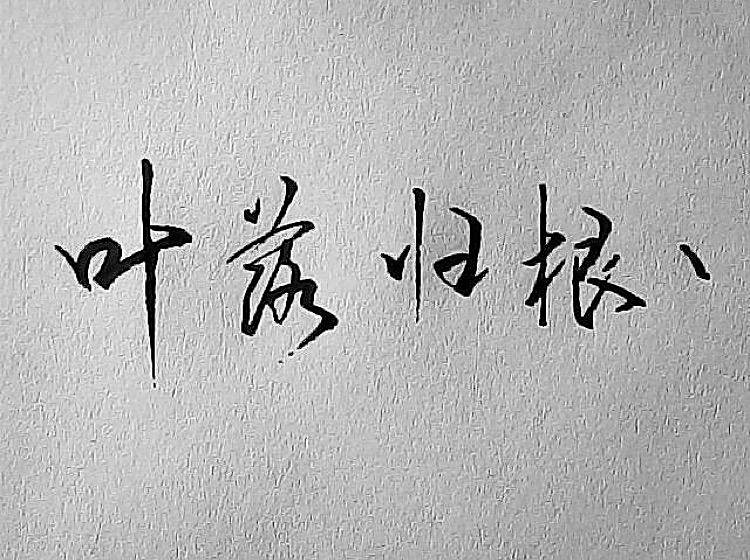 叶落归根、